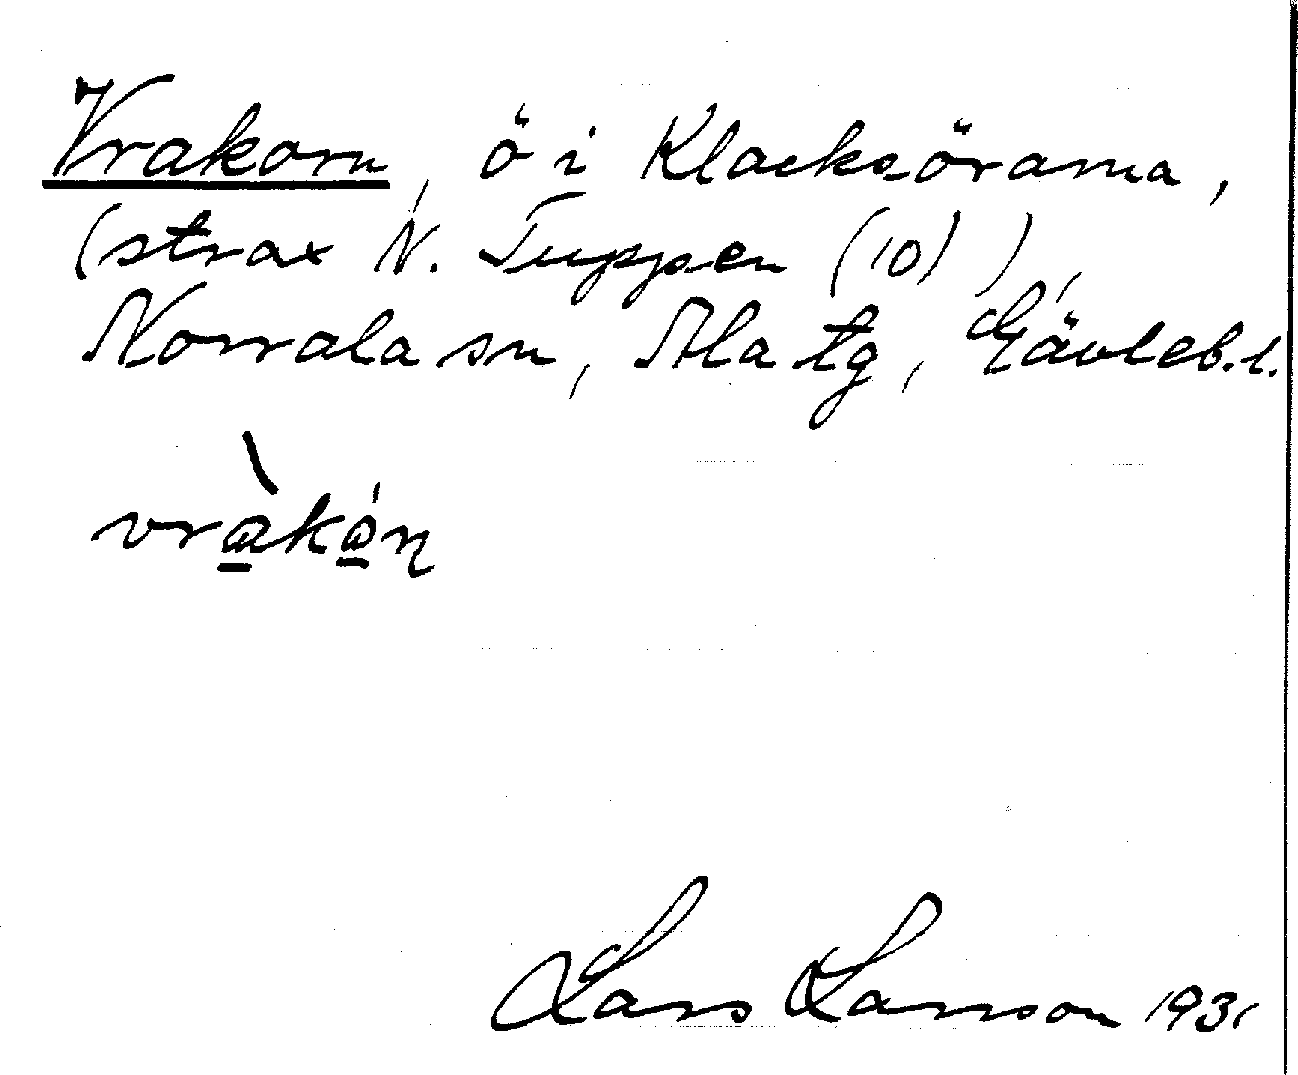 Vrakorn, ö i Klacksörarna,
(strax N. Tuppen (10)),
Norrala sn, Ala tg, Gävleb.l.
vràkón
Lars Larsson 1931